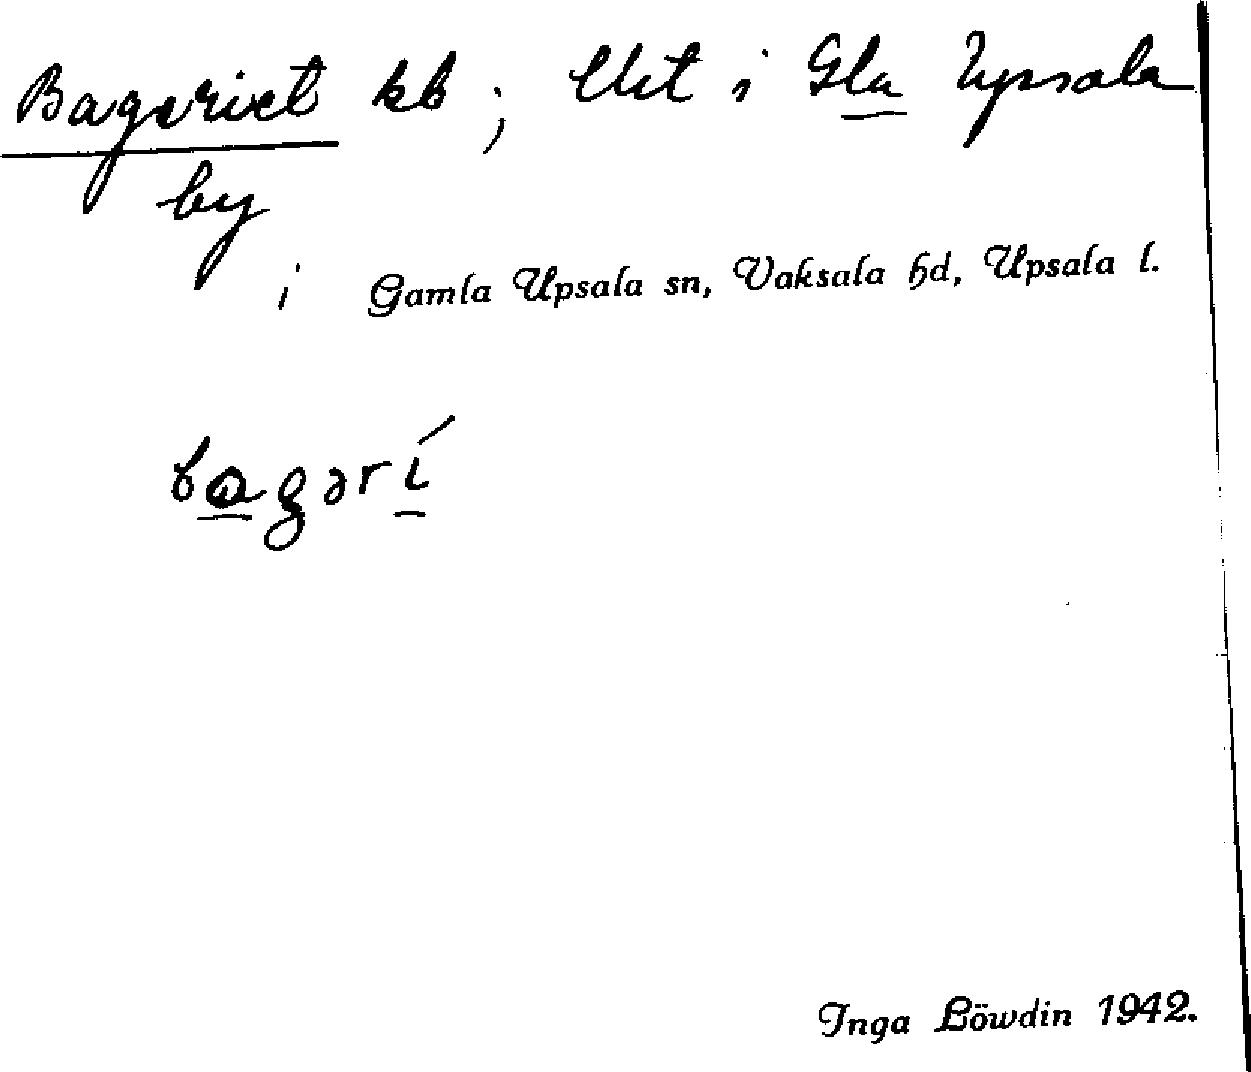 Bageriet kb; lht i Gla Upsala
by
i Gamla Upsala sn, Vaksala hd, Upsala l.
bagərí
Inga Löwdin 1942.